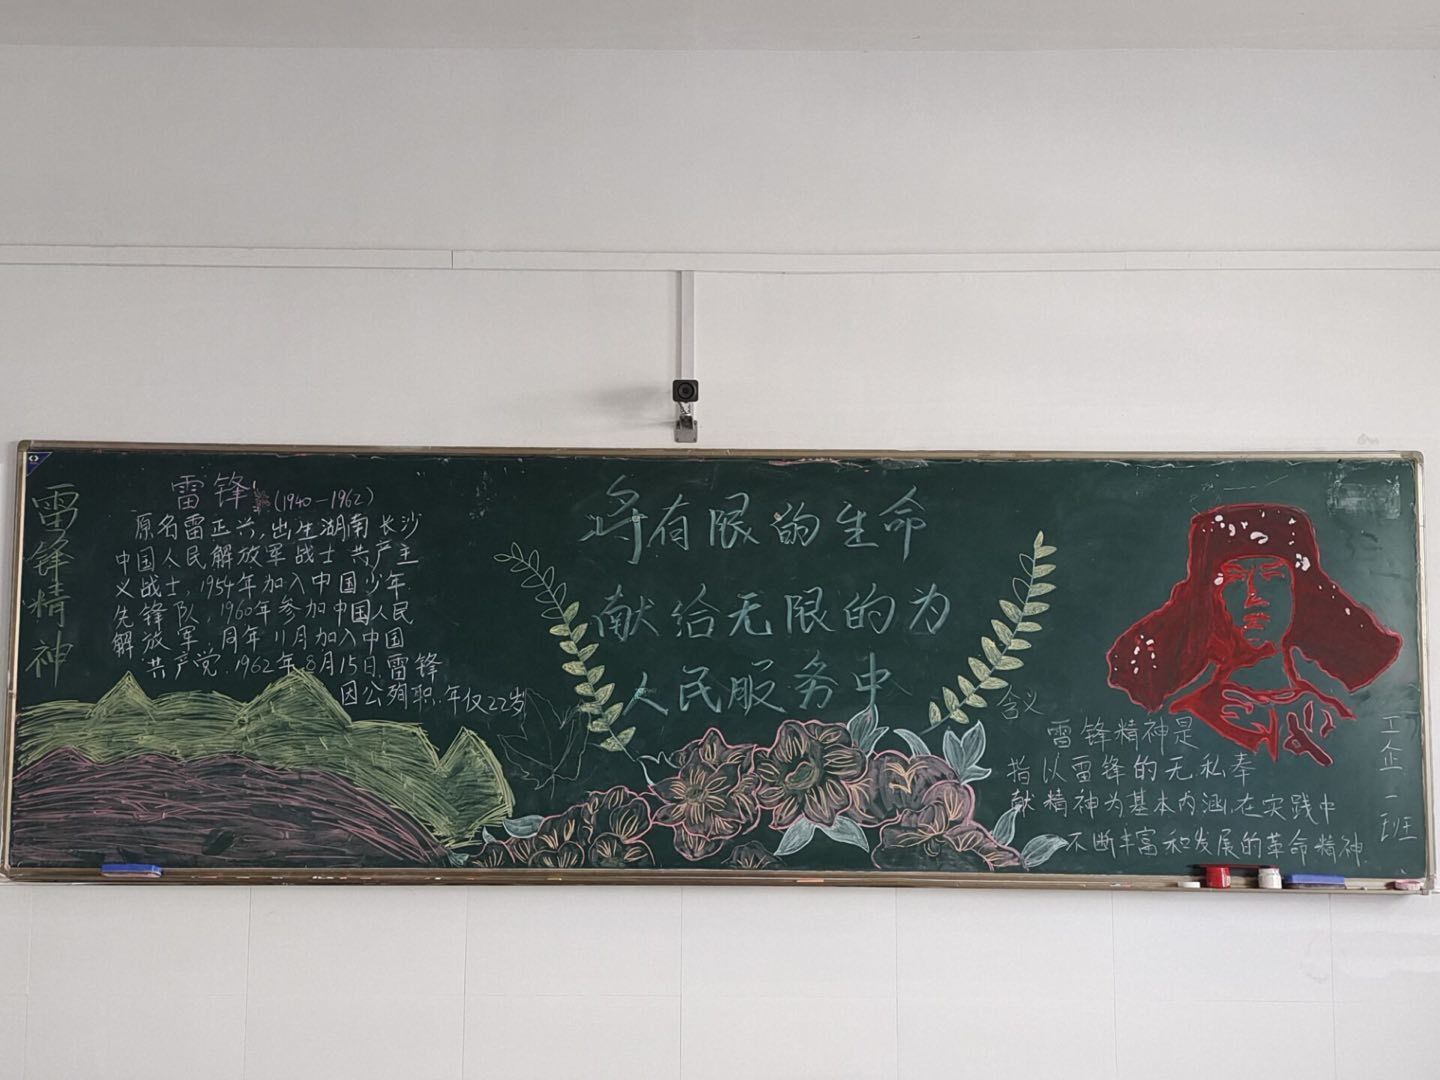 雷锋精神
雷锋(1940-1962)
原名雷正兴,出生湖南长沙
中国人民解放军战士共产主
义战士,1954年加入中国少年
先锋队,1960年参加中国人民
解放军,同年11月加入中国
共产党.1962年8月15日,雷锋
因公殉职,年仅22岁
将有限的生命
献给无限的为
人民服务中
含义
雷锋精神是
指以雷锋的无私奉
献精神为基本内涵,在实践中
不断丰富和发展的革命精神.
工企一班